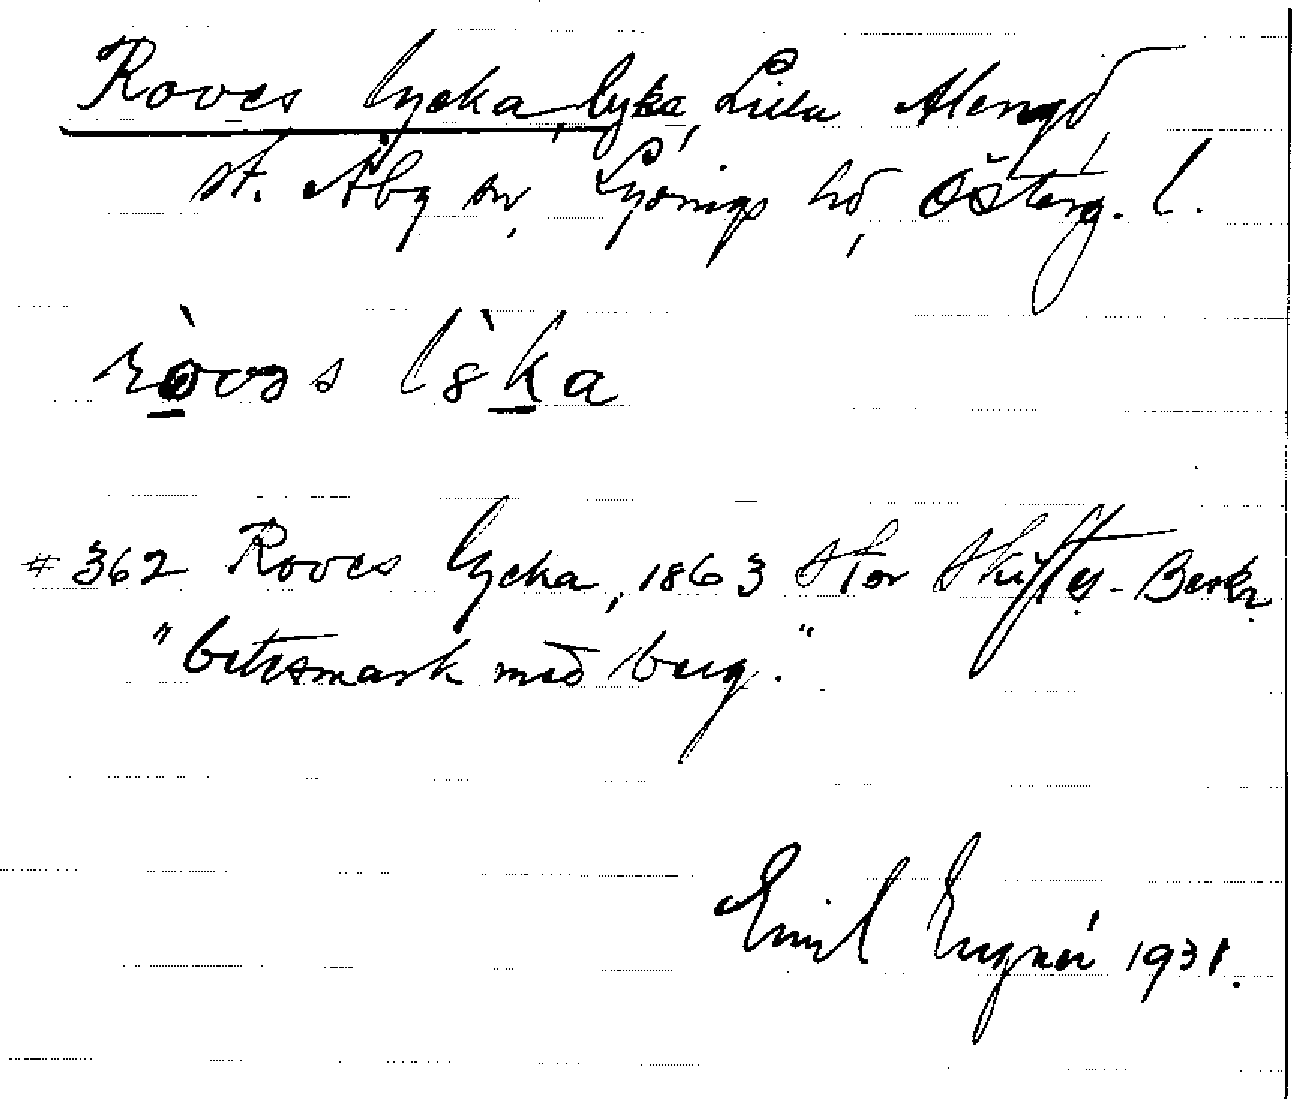 Roves lycka, lyka, Lilla Alengd,
st. Åby sn, Lysings hd, Österg. l.
ròvəs lỳka
# 362 Roves lycka, 1863 Stor Skiftes-Beskr.
"betesmark med berg."
Emil 1931.